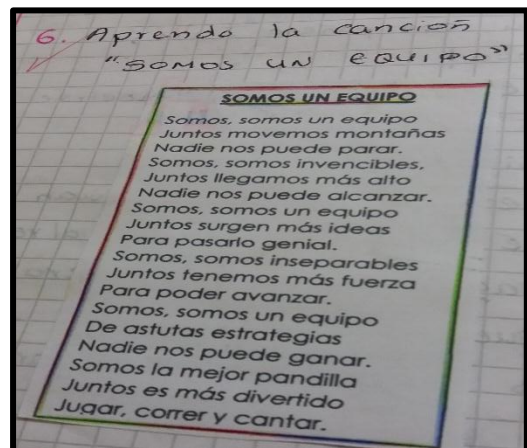 6. Aprendo la canción
"SOMOS UN EQUIPO"
SOMOS UN EQUIPO
Somos, somos un equipo
Juntos movemos montañas
Nadie nos puede parar.
Somos, somos invencibles,
Juntos llegamos más alto
Nadie nos puede alcanzar.
Somos, somos un equipo
Juntos surgen más ideas
Para pasarlo genial.
Somos, somos inseparables
Juntos tenemos más fuerza
Para poder avanzar.
Somos, somos un equipo
De astutas estrategias
Nadie nos puede ganar.
Somos la mejor pandilla
Juntos es más divertido
Jugar, correr y cantar.